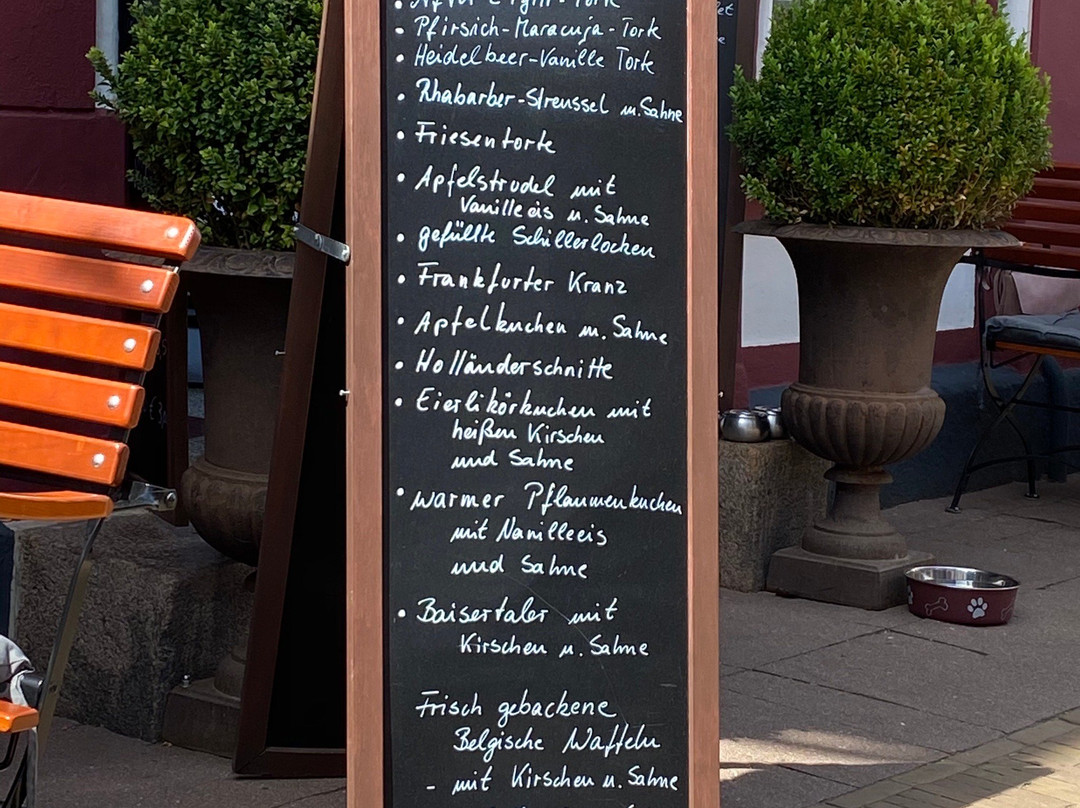 Torte
• Pfirsich-Maracuja-Torte
• Heidelbeer-Vanille Torte
• Rhabarber-Streussel m. Sahne
• Friesentorte
• Apfelstrudel mit
Vanilleeis u. Sahne
• gefüllte Schillerlocken
• Frankfurter Kranz
• Apfelkuchen m. Sahne
• Holländerschnitte
• Eierlikörkuchen mit
heißen Kirschen
und Sahne
• warmer Pflaumenkuchen
mit Vanilleeis
und Sahne
• Baisertaler mit
Kirschen u. Sahne
Frisch gebackene
Belgische Waffeln
- mit Kirschen u. Sahne